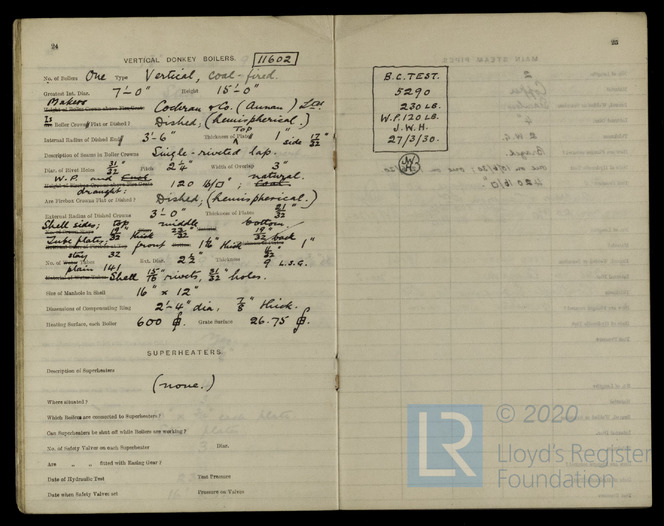 24
VERTICAL DONKEY BOILERS. 11602
No. of Boilers One Type Vertical, coal-fired.
Greatest Int. Diar. 7'-0" Height 15'-0"
Makers Cochran & Co. (Annan) Ltd.
Is Boiler Crown Flat or Dished? Dished, (hemispherical.)
Internal Radius of Dished End 3'-6" Thickness of Plates Top 1" side 17/32"
Description of Seams in Boiler Crowns Single-riveted lap.
Diar. of Rivet Holes 31/32" Pitch 2 1/4" Width of Overlap 3"
W.P. and 120 lb/□"; natural
draught.
Are Firebox Crowns Flat or Dished? Dished, (hemispherical.)
External Radius of Dished Crowns 3'-0" Thickness of Plates 21/32"
Shell sides; top middle bottom
19/32" thick 23/32" 19/32"
Tube plates; front 1 1/16" thick back 1"
No. of stay Tubes 32 Ext. Diar. 2 1/2" Thickness
plain 141 9 L.S.G.
Shell 15/16" rivets, 31/32" holes.
Size of Manhole in Shell 16" x 12"
Dimensions of Compensating Ring 2'-4" dia, 7/8" thick.
Heating Surface, each Boiler 600 Grate Surface 26.75
SUPERHEATERS.
Description of Superheaters
(none.)
Where situated?
Which Boilers are connected to Superheaters?
Can Superheaters be shut off while Boilers are working?
No. of Safety Valves on each Superheater Diar.
Are " " fitted with Easing Gear?
Date of Hydraulic Test Test Pressure
Date when Safety Valves set Pressure on Valves
25
B.C. TEST.
5290
230 LB.
W.P. 120 LB.
J.W.H.
27/3/30.
JWH
LR © 2020
Lloyd's Register
Foundation